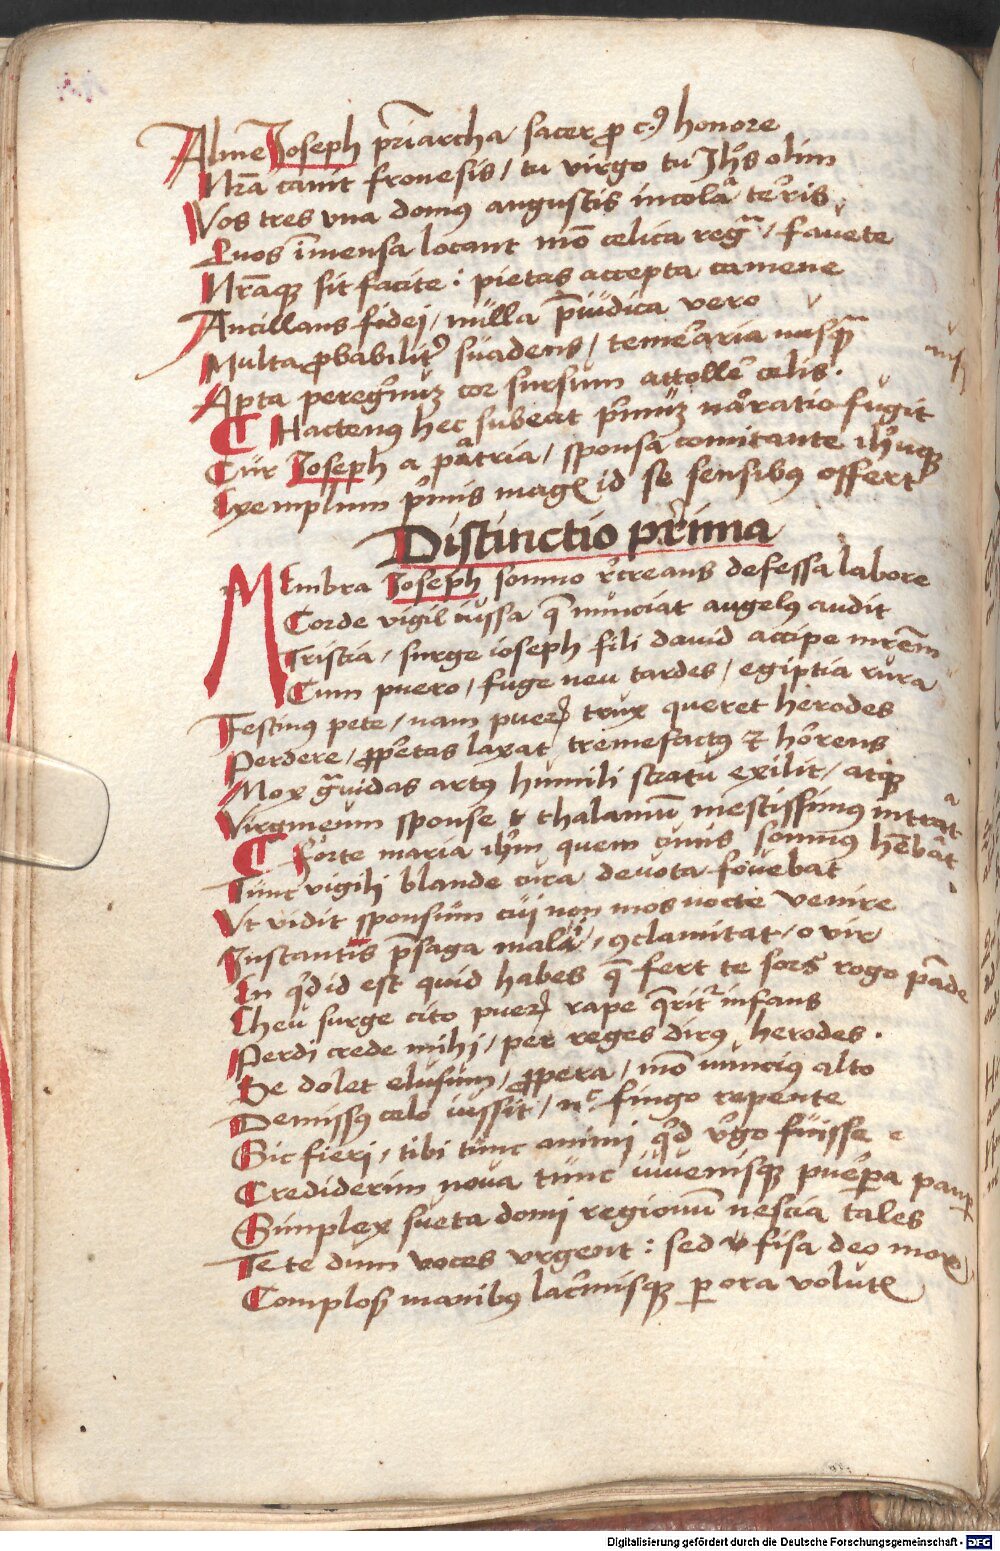 Alme Joseph pr̄iarcha sacer ꝓ cꝰ honore
Nr̄a canit fronesis / tu virgo tu Jhs̄ olim
Vos tres vna domꝰ angustis incola terris
Quos īmensa locant mō celica regna / favete
Nr̄aqꝫ sit facite : pietas accepta camene
Ancillans fidej / nulla p̄iudica vero
Multa ꝓbabiliter suadens / temeraria nusqͣ
Apta peregrinuꝫ cor sursum attollere celis .
Hactenꝰ hec subeat primuꝫ narratio fugit
Cur Joseph a patria / sponsa comitante ihuqꝫ
Exemplum primis magꝭ id se sensibꝰ offert
Distinctio prima
Membra Joseph somno recreans defessa labore
Corde vigil iussa q̄ nunciat angelꝰ audit
Tristia / surge ioseph fili dauid accipe mr̄em
Cum puero / fuge neu tardes / egiptia rura
Festinus pete / nam pueꝝ trux queret herodes
Perdere / ꝓperetas laxat tremefactꝰ et horrens
Mox gravidas artus humili stratu exilit / atqꝫ
Virgineum sponse thalamū mestissimus intrat
Forte maria ihm̄ quem cunis somnus habebat
Tunc vigili blande cura devota fovebat
Vt vidit sponsum cuj non mos nocte venire
Instantis p̄saga mali / ꝯclamitat / o vir
In qd id est quid habes q̄ fert te sors rogo pande
Eheu surge cito pueꝝ rape q̄ritur infans
Perdi crede mihj / per reges dirꝰ herodes .
Se dolet elusum / ꝓpera / mō nuncius alto
Demissꝰ celo iussit / nc fingo repente
Sic fierj / tibi tunc animi qd virgo fuisse
Crediderim nova tunc iuvenisqꝫ puerpera
Simplex sueta domj regionū nescia tales
Te te dum voces vrgent : sed fisa deo mox
Complosis manibꝰ lacrimisqꝫ per ora volutꝭ
Digitalisierung gefördert durch die Deutsche Forschungsgemeinschaft - DFG